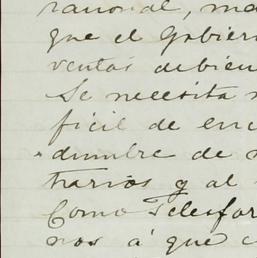 racional, ma
que el Gobier
ventas debien
Se necesita
ficil de enc
dumbre de
trarios y al
Como Telesfor
nos á que c